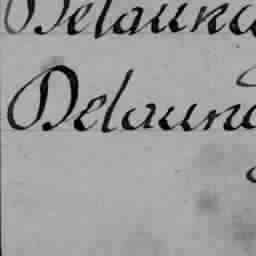 Delauna
Delauna